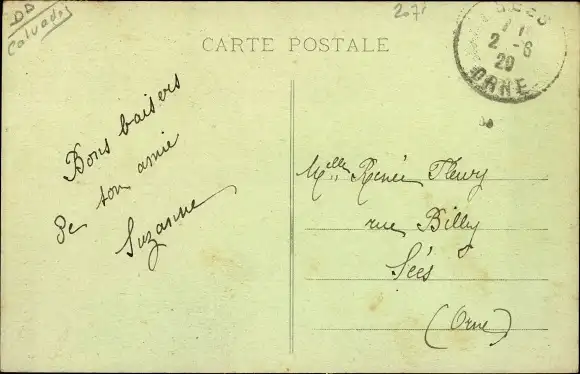 DD
Calvados
207
CARTE POSTALE
SEES
2 -6
20
ORNE
Bons baisers
de ton amie
Suzanne
Melle Renée Fleury
rue Billy
Sées
(Orne)